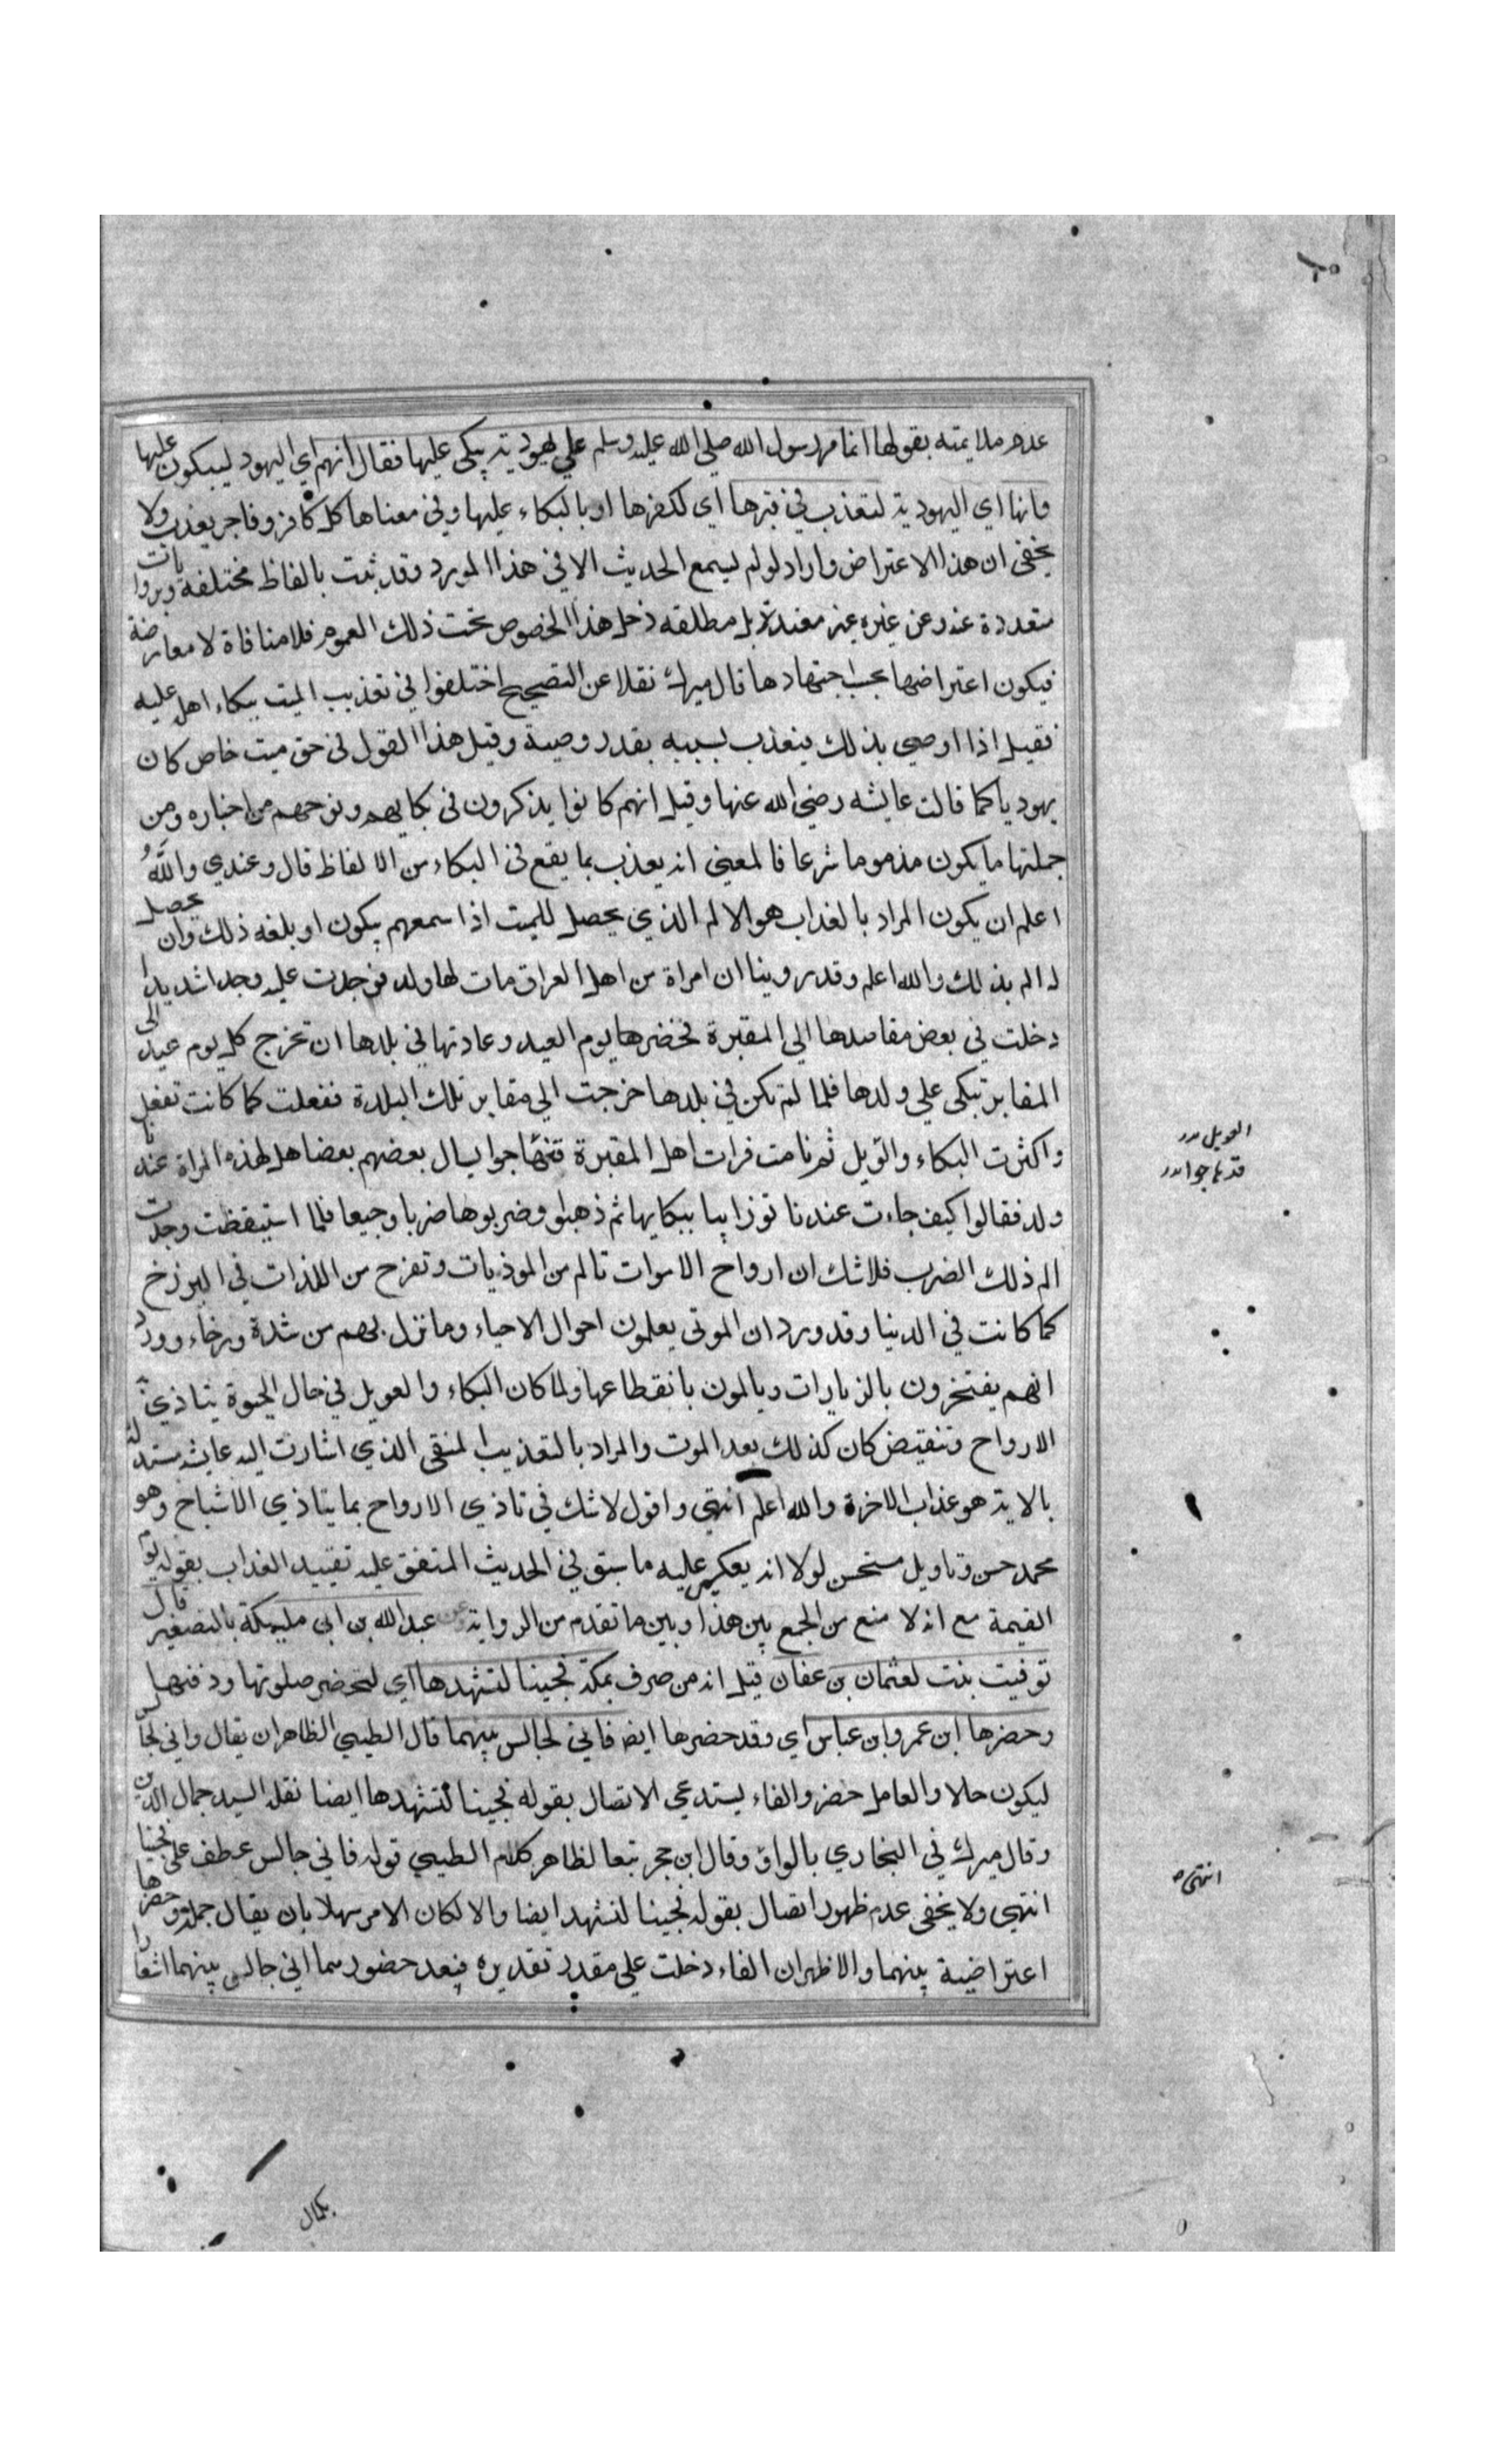 عدم ملايمته بقولها انما مر رسول الله صلى الله عليه وسلم علي يهودية يبكى عليها فقال انهم اي اليهود ليبكون عليها
وانها اي اليهودية لتعذب في قبرها اي لكفرها او بالبكاء عليها وفي معناها كل كافر وفاجر يعذب ولا
يخفى ان هذا الاعتراض وارد لو لم يسمع الحديث الا في هذا المورد وقد ثبت بالفاظ مختلفة وبروايات
متعددة عنه وعن غيره غير مقيدة بل مطلقه دخل هذا الخصوص تحت ذلك العموم فلا منافاة لا معارضة
فيكون اعتراضها بحسب اجتهادها قال ميرك نقلا عن التصحيح اختلفوا في تعذيب الميت ببكاء اهله عليه
فقيل اذا اوصى بذلك فيعذب بسببه بقدر وصية وقيل هذا القول في حق ميت خاص كان
يهوديا كما قالت عايشه رضي الله عنها وقيل انهم كانوا يذكرون في بكايهم ونوحهم من اخباره ومن
جملتها ما يكون مذموما شرعا فالمعنى انه يعذب بما يقع في البكاء من الالفاظ قال وعندي والله
اعلم ان يكون المراد بالعذاب هو الالم الذي يحصل للميت اذا سمعهم يبكون او بلغه ذلك وان يحصل
له الم بذلك والله اعلم وقد روينا ان امراة من اهل العراق مات لها ولد فوجدت عليه وجدا شديدا
دخلت في بعض مقاصدها الي المقبرة فحضرها يوم العيد وعادتها في بلدها ان تخرج كل يوم عيد الى
المقابر تبكى علي ولدها فلما لم تكن في بلدها خرجت الي مقابر تلك البلدة ففعلت كما كانت تفعل
واكثرت البكاء والويل ثم نامت فرات اهل المقبرة قد هاجوا يسال بعضهم بعضا هل لهذه المراة عندنا
ولد فقالوا كيف جاءت عندنا توذاينا ببكايها ثم ذهبوا وضربوها ضربا وجيعا فلما استيقظت وجدت
الم ذلك الضرب فلا شك ان ارواح الاموات تالم من الموذيات وتفرح من اللذات في البرزخ
كما كانت في الدنيا وقد ورد ان الموتى يعلمون احوال الاحياء وما نزل بهم من شدة ورخاء وورد
انهم يفتخرون بالزيارات ويالمون بانقطاعها ولما كان البكاء والعويل في حال الحيوة يتاذى به
الارواح وتنقبض كان كذلك بعد الموت والمراد بالتعذيب المنفى الذي اشارت اليه عايشه مستدلة
بالاية هو عذاب الاخرة والله اعلم انتهى واقول لا شك في تاذي الارواح بما يتاذي الاشباح وهو
محمد حسن وتاويل مستحسن لولا انه يعكر عليه ما سبق في الحديث المتفق عليه تقييد العذاب بقوله يوم
القيمة مع انه لا منع من الجمع بين هذا وبين ما تقدم من الرواية عن عبد الله بن ابى مليكة بالتصغير قال
توفيت بنت لعثمان بن عفان قيل انه من صرف بمكة فجينا لنشهدها اي لنحضر صلوتها ودفنها
وحضرها ابن عمر وابن عباس اي وقد حضرها ايضا فاني لجالس بينهما قال الطيبي الظاهر ان يقال واني لجالس
ليكون حالا والعامل حضر والفاء يستدعى الاتصال بقوله فجينا لنشهدها ايضا نقله السيد جمال الدين
وقال ميرك في البخاري بالواو وقال ابن حجر تبعا لظاهر كلام الطيبي قوله فاني جالس عطف على فجينا
انتهى ولا يخفى عدم ظهور اتصال بقوله فجينا لنشهد ايضا والا لكان الامر سهلا بان يقال جملة وحضرها
اعتراضية بينهما والاظهر ان الفاء دخلت علي مقدر تقديره فبعد حضورهما اني جالس بينهما اشعارا
العويل
قد هاجوا
انتهى
بكمال